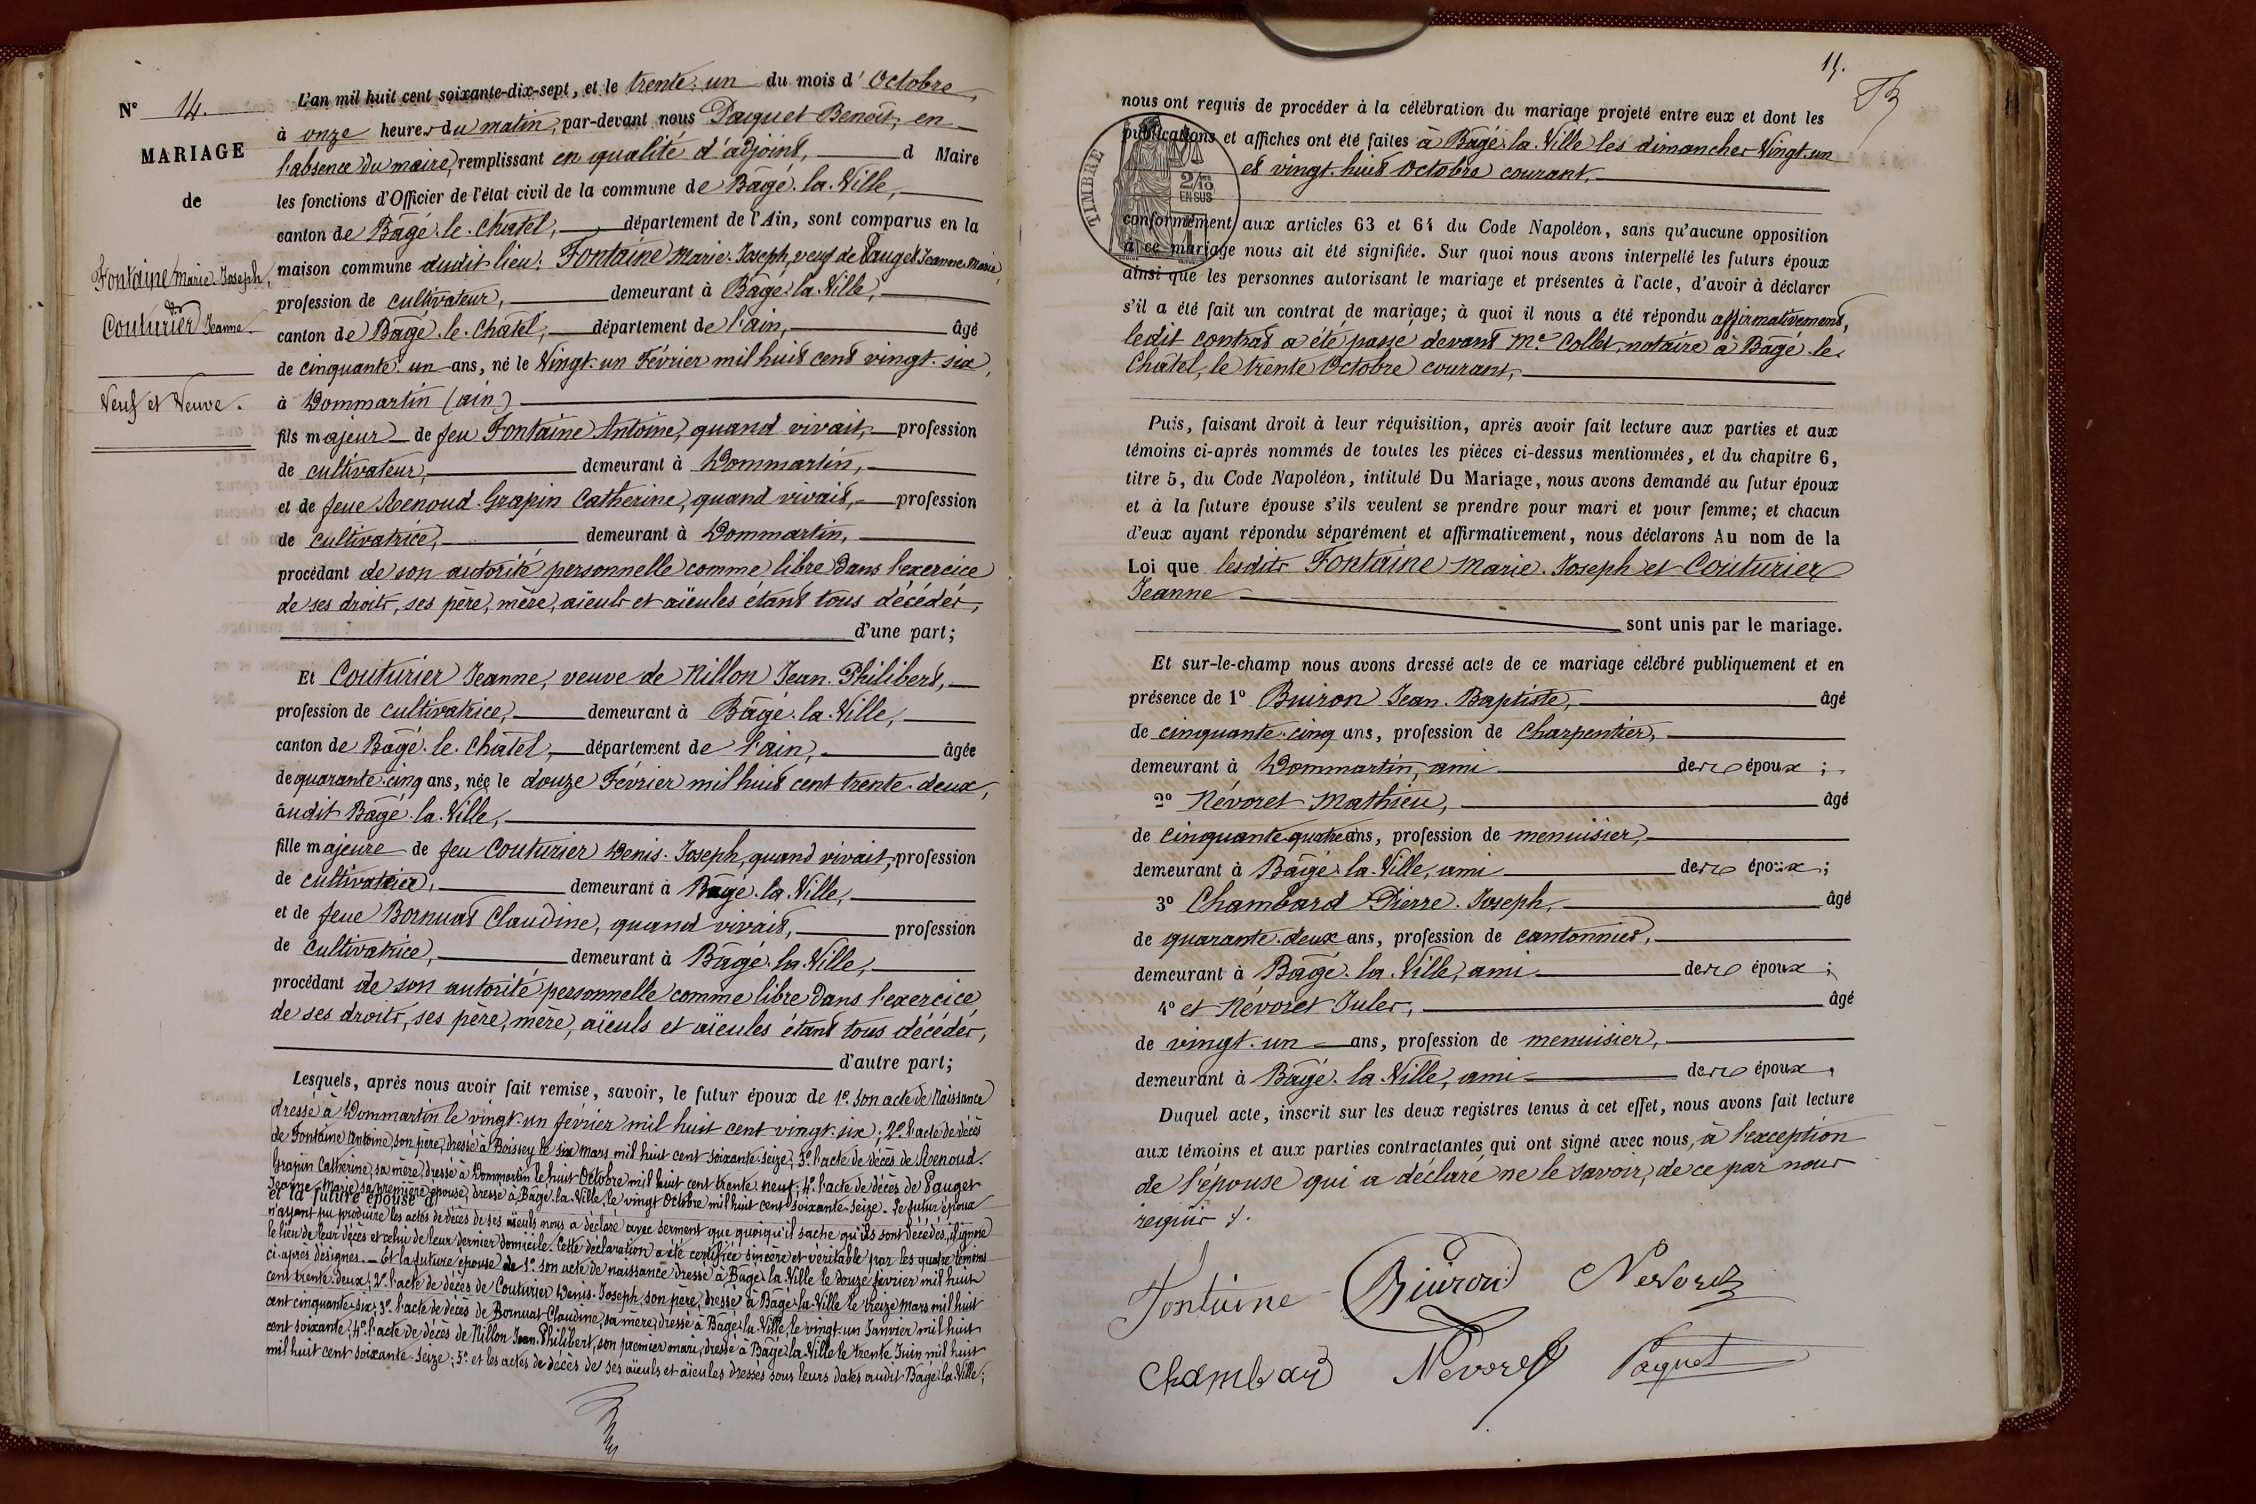 N° 14.
MARIAGE
de
Fontaine Marie-Joseph,
&
Couturier Jeanne
Veuf et Veuve.
L'an mil huit cent soixante-dix-sept, et le trente-un du mois d'Octobre,
à onze heures du matin, par-devant nous Paquet Benoit, en
l'absence du maire, remplissant en qualité d'adjoint, d Maire
les fonctions d'Officier de l'état civil de la commune de Bâgé-la-Ville,
canton de Bâgé-le-Châtel, département de l'Ain, sont comparus en la
maison commune dudit lieu: Fontaine Marie-Joseph, veuf de Pauget Jeanne-Marie,
profession de cultivateur, demeurant à Bâgé-la-Ville,
canton de Bâgé-le-Châtel, département de l'ain, âgé
de cinquante-un ans, né le Vingt-un Février mil huit cent vingt-six,
à Dommartin (ain)
fils majeur de feu Fontaine Antoine, quand vivait, profession
de cultivateur, demeurant à Dommartin,
et de feue Renoud-Grapin Catherine, quand vivait, profession
de cultivatrice, demeurant à Dommartin,
procédant de son autorité personnelle comme libre dans l'exercice
de ses droits, ses père, mère, aïeuls et aïeules étant tous décédés,
d'une part;
Et Couturier Jeanne, veuve de Nillon Jean-Philibert,
profession de cultivatrice, demeurant à Bâgé-la-Ville,
canton de Bâgé-le-Châtel, département de l'ain, âgée
de quarante-cinq ans, née le douze Février mil huit cent trente-deux,
audit Bâgé-la-Ville,
fille majeure de feu Couturier Denis-Joseph, quand vivait, profession
de cultivateur, demeurant à Bâgé-la-Ville,
et de feue Bornuat Claudine, quand vivait, profession
de cultivatrice, demeurant à Bâgé-la-Ville,
procédant de son autorité personnelle comme libre dans l'exercice
de ses droits, ses père, mère, aïeuls et aïeules étant tous décédés,
d'autre part;
Lesquels, après nous avoir fait remise, savoir, le futur époux de 1° son acte de Naissance
dressé à Dommartin le vingt-un février mil huit cent vingt-six; 2° l'acte de décès
de Fontaine Antoine, son père, dressé à Boissey le six mars mil huit cent soixante-seize; 3° l'acte de décès de Renoud-
Grapin Catherine, sa mère, dressé à Dommartin le huit Octobre mil huit cent trente-neuf; 4° l'acte de décès de Pauget
Jeanne-Marie, sa première épouse, dressé à Bâgé-la-Ville, le vingt Octobre mil huit cent soixante-seize. Le futur époux
et la future épouse d
n'ayant pu produire les actes de décès de ses aïeuls nous a déclaré avec serment que quoiqu'il sache qu'ils sont décédés, il ignore
le lieu de leur décès et celui de leur dernier domicile. Cette déclaration a été certifiée sincère et véritable par les quatre témoins
ci-après désignés. — Et la future épouse de 1° son acte de naissance dressé à Bâgé-la-Ville le douze février mil huit
cent trente-deux; 2° l'acte de décès de Couturier Denis-Joseph, son père, dressé à Bâgé-la-Ville le treize mars mil huit
cent cinquante-six; 3° l'acte de décès de Bornuat Claudine, sa mère, dressé à Bâgé-la-Ville, le vingt-un Janvier mil huit
cent soixante; 4° l'acte de décès de Nillon Jean-Philibert, son premier mari, dressé à Bâgé-la-Ville le trente Juin mil huit
mil huit cent soixante-seize; 5° et les actes de décès de ses aïeuls et aïeules dressés sous leurs dates audit Bâgé-la-Ville;
15.
nous ont requis de procéder à la célébration du mariage projeté entre eux et dont les
publications et affiches ont été faites à Bâgé-la-Ville les dimanches Vingt-un
et vingt-huit Octobre courant,
TIMBRE
2/10
EN SUS
conformément aux articles 63 et 64 du Code Napoléon, sans qu'aucune opposition
à ce mariage nous ait été signifiée. Sur quoi nous avons interpellé les futurs époux
ainsi que les personnes autorisant le mariage et présentes à l'acte, d'avoir à déclarer
s'il a été fait un contrat de mariage; à quoi il nous a été répondu affirmativement,
ledit contrat a été passé devant Me Collet, notaire à Bâgé-le-
Châtel, le trente Octobre courant,
Puis, faisant droit à leur réquisition, après avoir fait lecture aux parties et aux
témoins ci-après nommés de toutes les pièces ci-dessus mentionnées, et du chapitre 6,
titre 5, du Code Napoléon, intitulé Du Mariage, nous avons demandé au futur époux
et à la future épouse s'ils veulent se prendre pour mari et pour femme; et chacun
d'eux ayant répondu séparément et affirmativement, nous déclarons Au nom de la
Loi que lesdits Fontaine Marie-Joseph et Couturier
Jeanne
sont unis par le mariage.
Et sur-le-champ nous avons dressé acte de ce mariage célébré publiquement et en
présence de 1° Buiron Jean-Baptiste, âgé
de cinquante-cinq ans, profession de Charpentier,
demeurant à Dommartin, ami des époux;
2° Névoret Mathieu, âgé
de cinquante-quatre ans, profession de menuisier,
demeurant à Bâgé-la-Ville, ami des époux;
3° Chambard Pierre-Joseph, âgé
de quarante-deux ans, profession de cantonnier,
demeurant à Bâgé-la-Ville, ami des époux;
4° et Névoret Jules, âgé
de vingt-un ans, profession de menuisier,
demeurant à Bâgé-la-Ville, ami des époux.
Duquel acte, inscrit sur les deux registres tenus à cet effet, nous avons fait lecture
aux témoins et aux parties contractantes qui ont signé avec nous, à l'exception
de l'épouse qui a déclaré ne le savoir, de ce par nous
requis.
Fontaine Buiron Nevoret
Chambard Nevoret Paquet